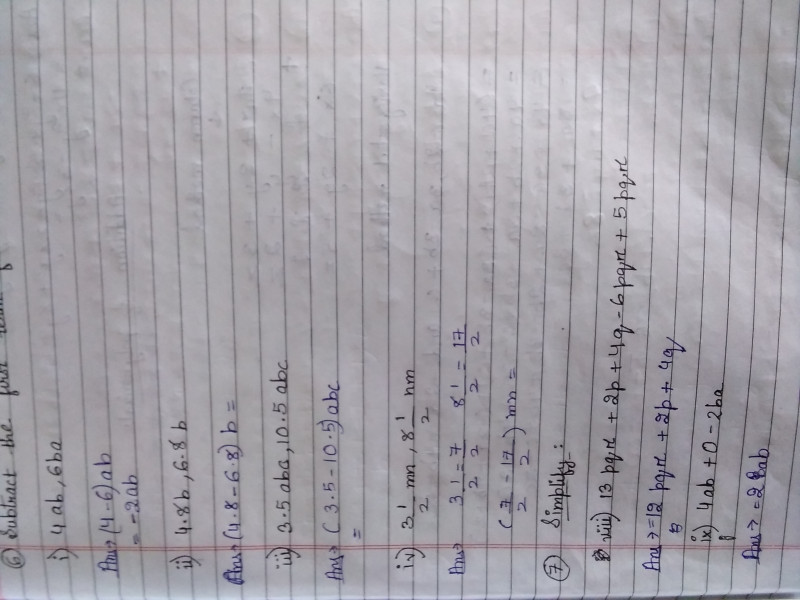 ⑥ Subtract the first term
i) 4ab, 6ba
Ans→ (4-6)ab
= -2ab
ii) 4.8b, 6.8b
Ans→ (4.8-6.8)b =
iii) 3.5aba, 10.5abc
Ans→ (3.5-10.5)abc
=
iv) 3 1/2 mn, 8 1/2 nm
Ans→ 3 1/2 = 7/2 8 1/2 = 17/2
(7/2 - 17/2) mn =
⑦ Simplify:
viii) 13pqr + 2p + 4q - 6pqr + 5pqr
Ans→ = 12pqr + 2p + 4q
ix) 4ab + 0 - 2ba
Ans→ = 2ab